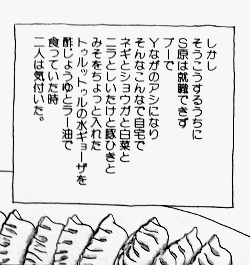 しかし
そうこうするうちに
S原は就職できず
プーで
Yながのアシになり
そんなこんなで自宅で
ネギとショウガと白菜と
ニラとしいたけと豚ひきと
みそをちょっと入れた
トゥルットゥルの水ギョーザを
酢じょうゆとラー油で
食っていた時
二人は気付いた。